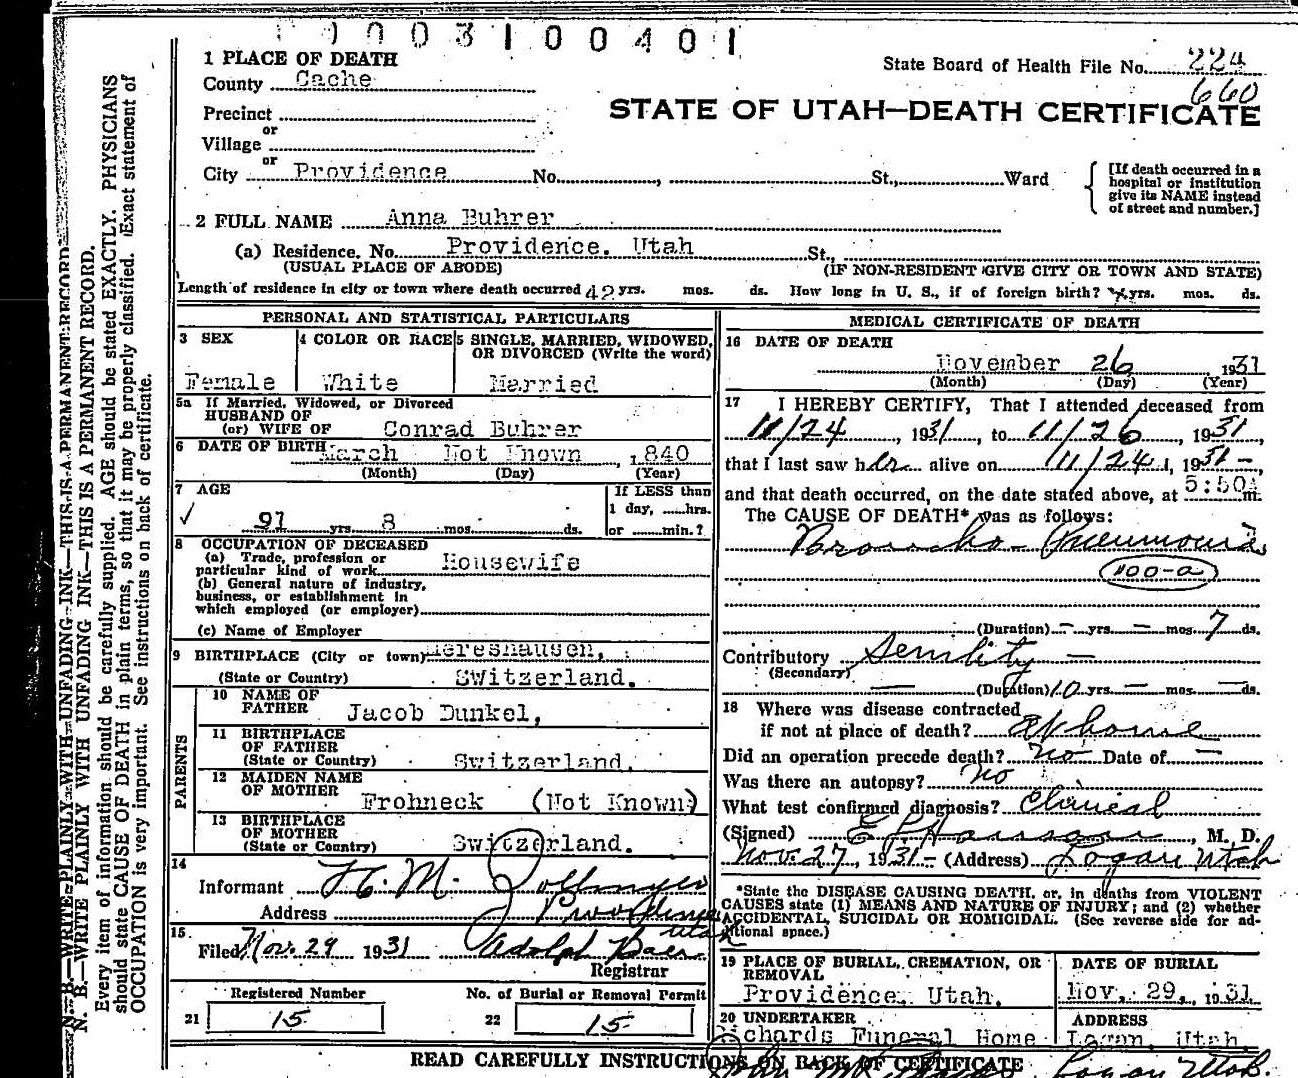 1 0 0 3 1 0 0 4 0 1
1 PLACE OF DEATH
State Board of Health File No. 224
County Cache
660
STATE OF UTAH—DEATH CERTIFICATE
Precinct
or
Village
or
City Providence No. , St., Ward
[If death occurred in a
hospital or institution
give its NAME instead
of street and number.]
2 FULL NAME Anna Buhrer
(a) Residence. No. Providence. Utah St.,
(USUAL PLACE OF ABODE) (IF NON-RESIDENT GIVE CITY OR TOWN AND STATE)
Length of residence in city or town where death occurred 42 yrs. mos. ds. How long in U. S., if of foreign birth? yrs. mos. ds.
PERSONAL AND STATISTICAL PARTICULARS
3 SEX 4 COLOR OR RACE 5 SINGLE, MARRIED, WIDOWED,
OR DIVORCED (Write the word)
Female White Married
5a If Married, Widowed, or Divorced
HUSBAND OF
(or) WIFE OF Conrad Buhrer
6 DATE OF BIRTH March Not Known , 1840
(Month) (Day) (Year)
7 AGE If LESS than
1 day, ......hrs.
✓ 91 yrs. 8 mos. ds. or ......min.?
8 OCCUPATION OF DECEASED
(a) Trade, profession or
particular kind of work Housewife
(b) General nature of industry,
business, or establishment in
which employed (or employer)
(c) Name of Employer
9 BIRTHPLACE (City or town)
(State or Country) Switzerland.
PARENTS
10 NAME OF
FATHER Jacob Dunkel,
11 BIRTHPLACE
OF FATHER
(State or Country) Switzerland.
12 MAIDEN NAME
OF MOTHER Frohneck (Not Known)
13 BIRTHPLACE
OF MOTHER
(State or Country) Switzerland.
14
Informant H. M.
Address Providence
Utah
15
Filed Nov. 29 1931 Adolph Baer
Registrar
Registered Number No. of Burial or Removal Permit
21 15 22 15
MEDICAL CERTIFICATE OF DEATH
16 DATE OF DEATH
November 26 , 1931
(Month) (Day) (Year)
17 I HEREBY CERTIFY, That I attended deceased from
11/24 , 1931 , to 11/26 , 1931 ,
that I last saw her alive on 11/24 , 1931 ,
and that death occurred, on the date stated above, at 5:50A m.
The CAUSE OF DEATH* was as follows:
Broncho-Pneumonia
100-a
(Duration) — yrs. — mos. 7 ds.
Contributory Senility —
(Secondary)
(Duration) 10 yrs. — mos. — ds.
18 Where was disease contracted
if not at place of death? At home
Did an operation precede death? No Date of —
Was there an autopsy? no
What test confirmed diagnosis? Clinical
(Signed) , M. D.
Nov. 27, 1931 - (Address) Logan Utah
*State the DISEASE CAUSING DEATH, or, in deaths from VIOLENT
CAUSES state (1) MEANS AND NATURE OF INJURY; and (2) whether
ACCIDENTAL, SUICIDAL OR HOMICIDAL. (See reverse side for ad-
ditional space.)
19 PLACE OF BURIAL, CREMATION, OR
REMOVAL
Providence, Utah.
DATE OF BURIAL
Nov. 29., 1931
20 UNDERTAKER
Richards Funeral Home
ADDRESS
Logan, Utah.
Logan Utah.
READ CAREFULLY INSTRUCTIONS ON BACK OF CERTIFICATE
N. B.—WRITE PLAINLY WITH UNFADING INK—THIS IS A PERMANENT RECORD
N. B.—WRITE PLAINLY WITH UNFADING INK—THIS IS A PERMANENT RECORD.
Every item of information should be carefully supplied. AGE should be stated EXACTLY. PHYSICIANS
should state CAUSE OF DEATH in plain terms, so that it may be properly classified. Exact statement of
OCCUPATION is very important. See instructions on back of certificate.